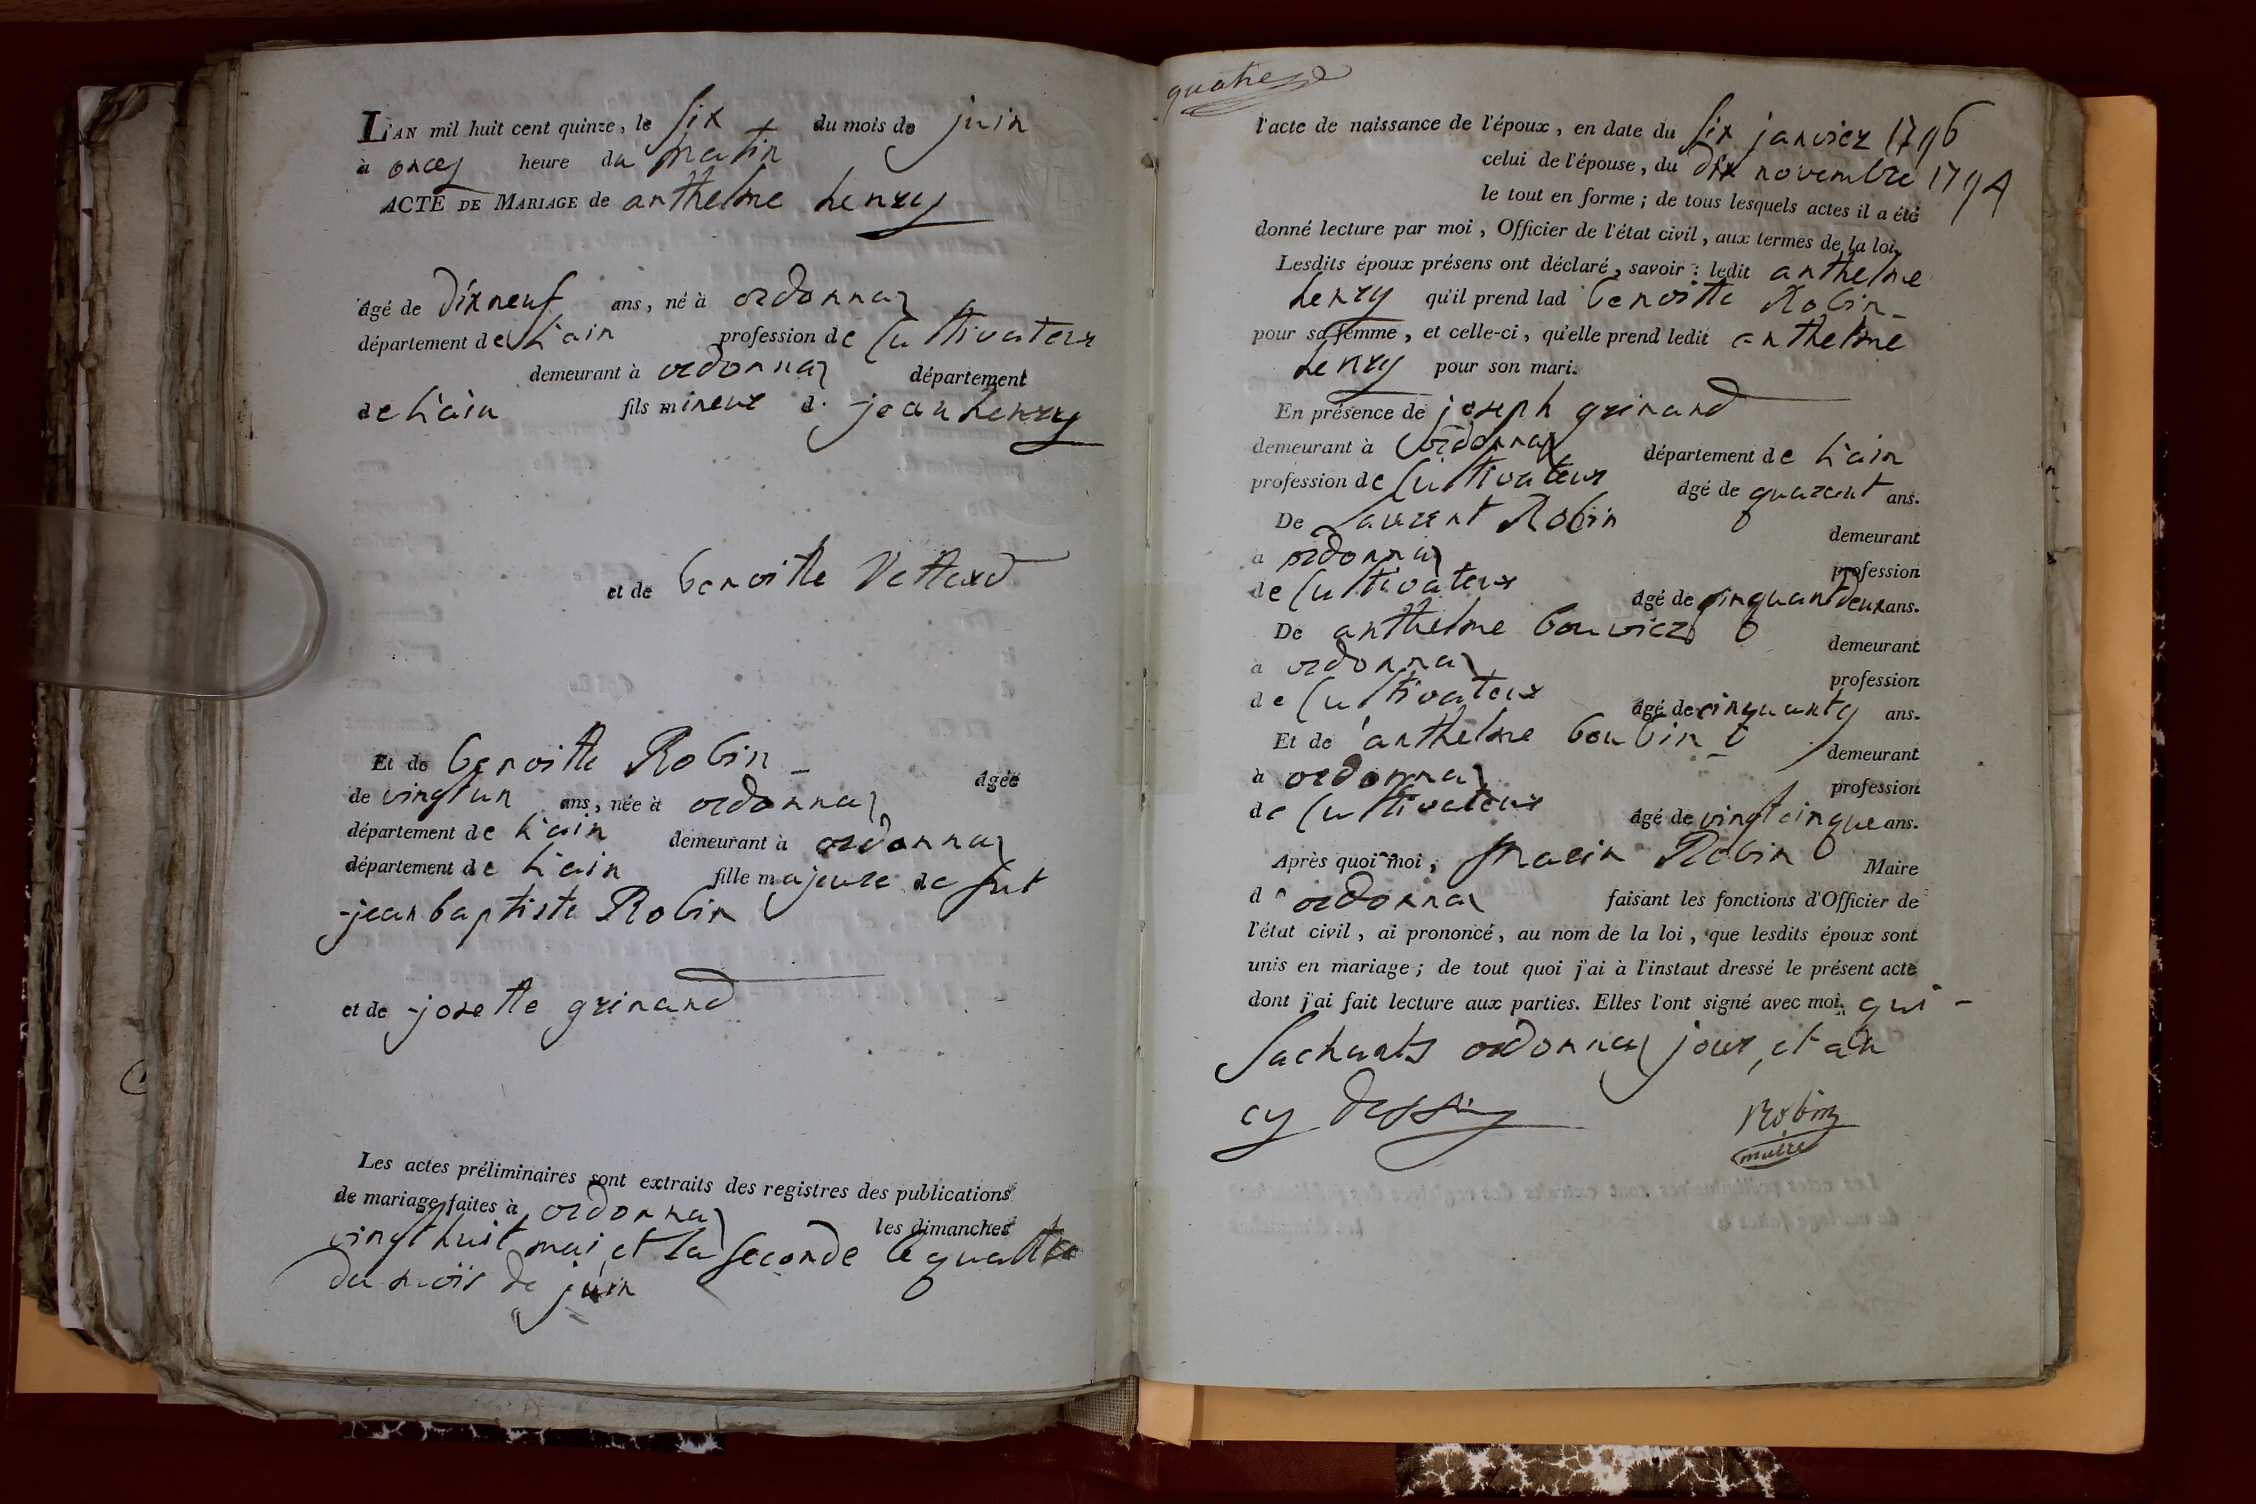 L'AN mil huit cent quinze, le Six du mois de juin
à onces heure du matin
ACTE DE MARIAGE de anthelme henry
agé de dixneuf ans, né à ordonnaz
département de L'ain profession de Cultivateur
demeurant à ordonnaz département
de L'ain fils mineur d. jean henry
et de benoitte Vettard
Et de benoitte Robin agée
de vingt un ans, née à ordonnaz
département de L'ain demeurant à ordonnaz
département de L'ain fille majeure de fut
jean baptiste Robin
et de josette grinand
Les actes préliminaires sont extraits des registres des publications
de mariage faites à ordonnaz les dimanches
vingt huit mai et la Seconde le quattre
du mois de juin
quatre
l'acte de naissance de l'époux, en date du Six janvier 1796
celui de l'épouse, du dix novembre 1794
le tout en forme; de tous lesquels actes il a été
donné lecture par moi, Officier de l'état civil, aux termes de la loi.
Lesdits époux présens ont déclaré, savoir: ledit anthelme
henry qu'il prend lad benoitte Robin
pour sa femme, et celle-ci, qu'elle prend ledit anthelme
henry pour son mari.
En présence de joseph grinand
demeurant à ordonnaz département de L'ain
profession de Cultivateur agé de quarent ans.
De Laurent Robin demeurant
à ordonnaz profession
de Cultivateur agé de cinquant deux ans.
De anthelme bouvier demeurant
à ordonnaz profession
de Cultivateur agé de cinquante ans.
Et de anthelme boubin demeurant
à ordonnaz profession
de Cultivateur agé de vingt cinque ans.
Après quoi moi, Robin Maire
d' ordonnaz faisant les fonctions d'Officier de
l'état civil, ai prononcé, au nom de la loi, que lesdits époux sont
unis en mariage; de tout quoi j'ai à l'instaut dressé le présent acte
dont j'ai fait lecture aux parties. Elles l'ont signé avec moi qui
Sachants ordonnaz jour et an
cy dessus
Robin
maire